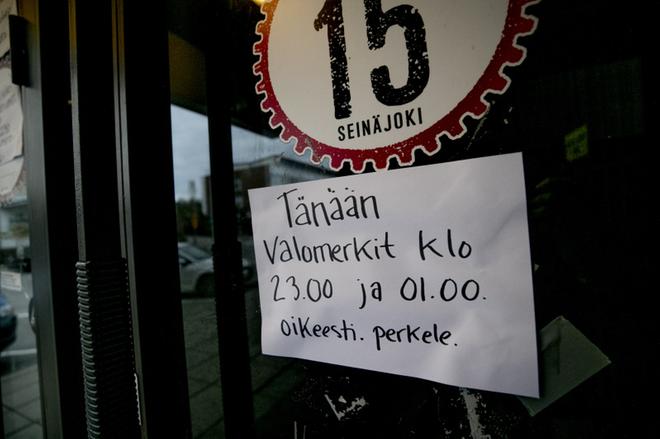 15
SEINÄJOKI
Tänään
Valomerkit klo
23.00 ja 01.00.
oikeesti. perkele.